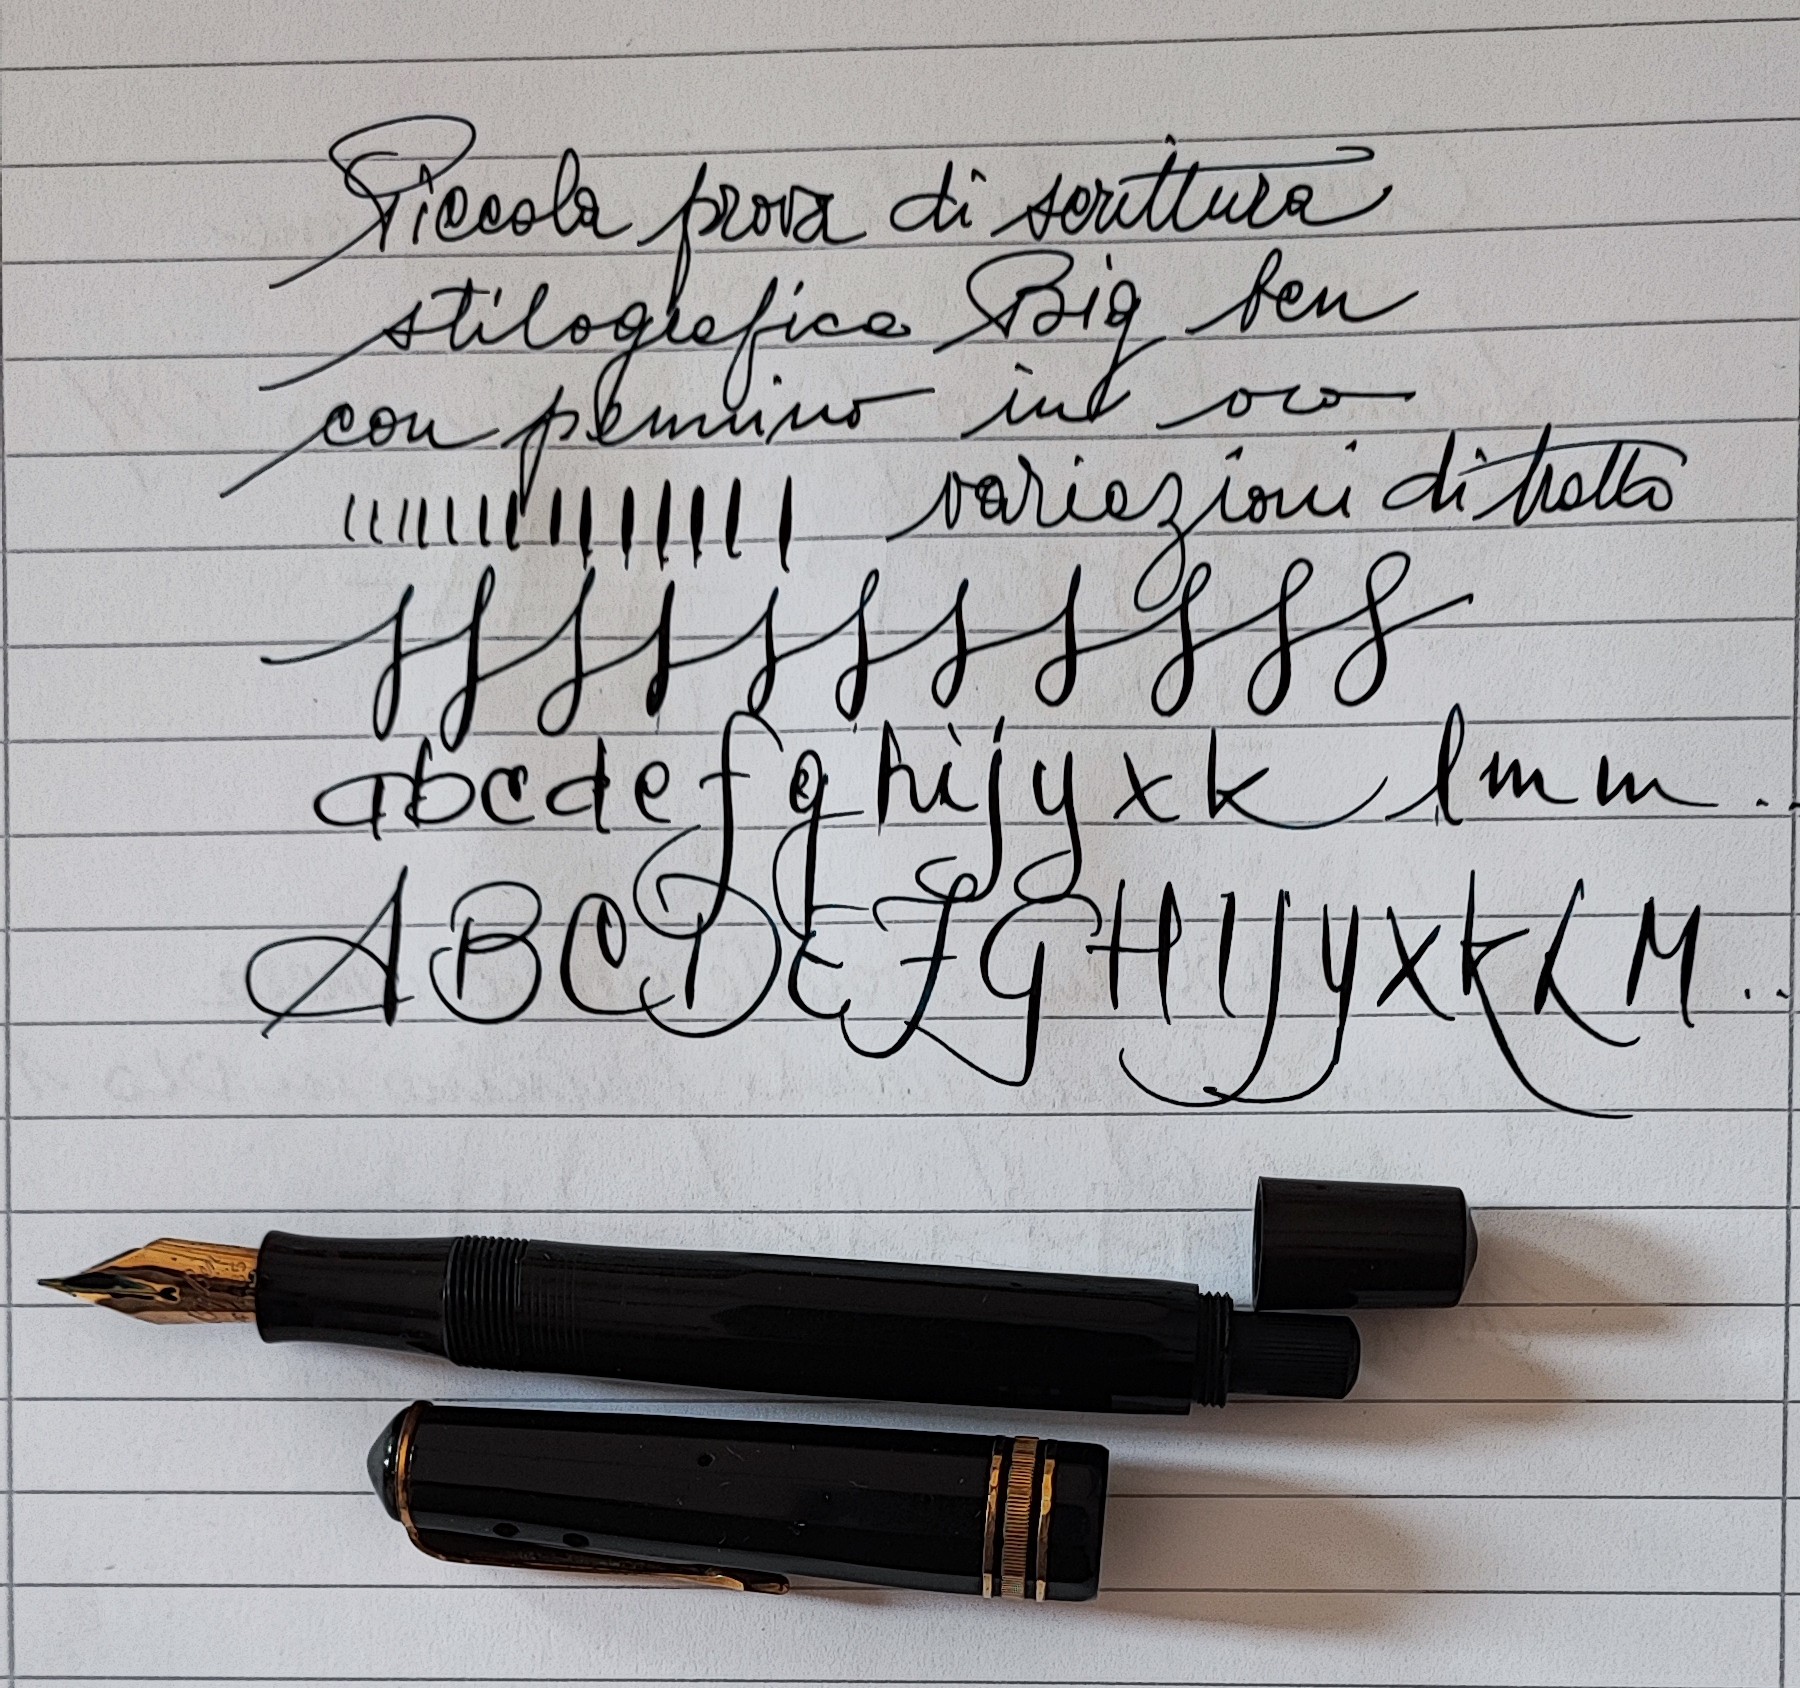 Piccola prova di scrittura
stilografica Big ben
con pennino in oro
variazioni di tratto
abcdefghijyxk lmm..
ABCDEFGHIJYXKLM..